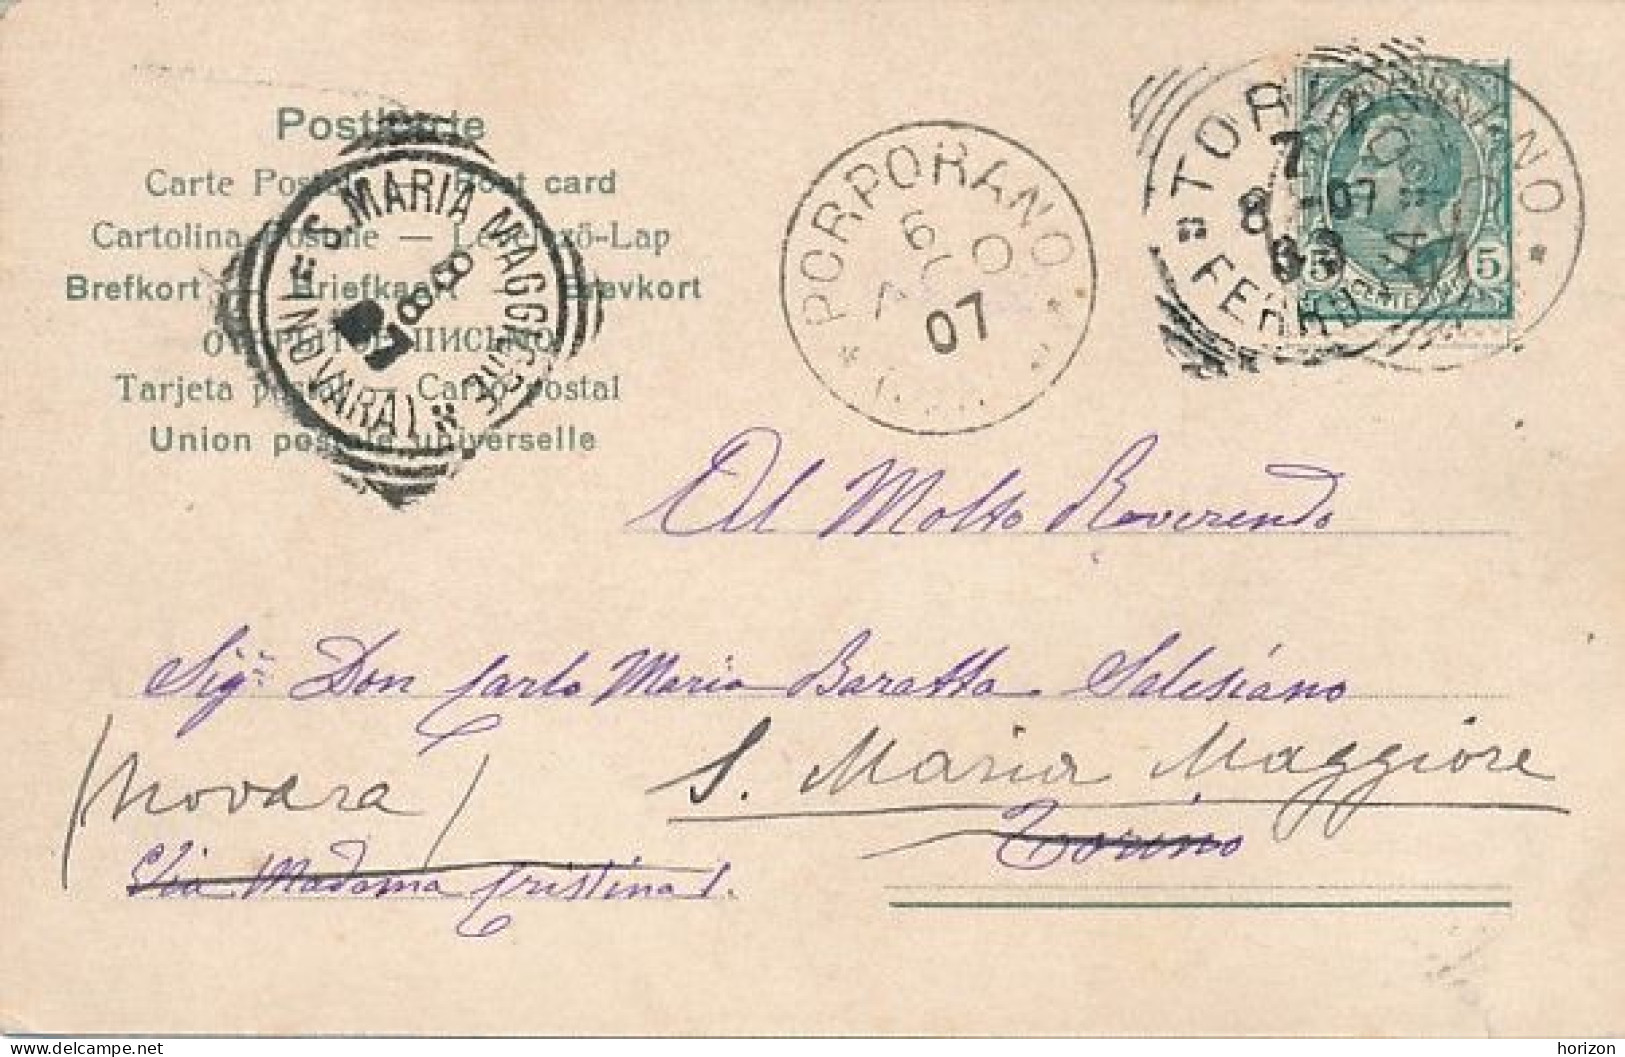 Postkarte
Carte Postale — Post card
Cartolina Postale — Levelező-Lap
Brefkort — Briefkaart — Brevkort
ОТКРЫТОЕ ПИСЬМО
Tarjeta postal — Carto postal
Union postale universelle
S. MARIA MAGGIORE
(NOVARA)
8 8
PORPORANO
07
TORINO
7
8 - 07
FERROVIA
5 5
Al Molto Reverendo
Sigr. Don Carlo Maria Baratta Salesiano
(Novara) S. Maria Maggiore
Torino
Via Madama Cristina 1.
horizon